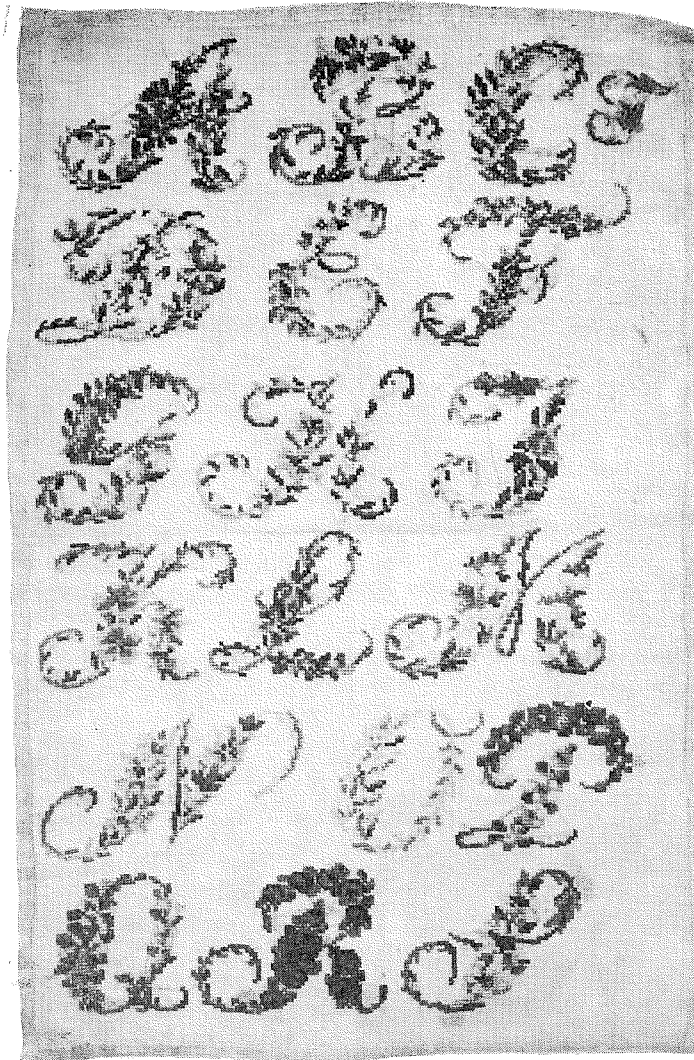 A B C
D E F
G H J
K L M
N O P
Q R S